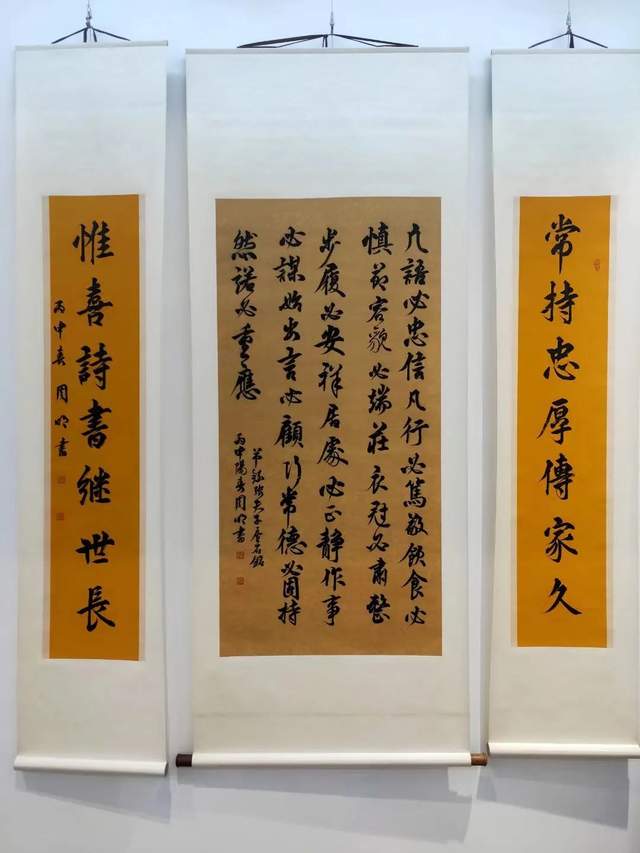 常持忠厚傳家久
凡語必忠信凡行必篤敬飲食必
慎節容貌必端莊衣冠必肅整
步履必安祥居處必正靜作事
必謀始出言必顧行常德必固持
然諾必重應
節錄張夫子座右銘
丙申陽春周明書
惟喜詩書继世長
丙申春周明書